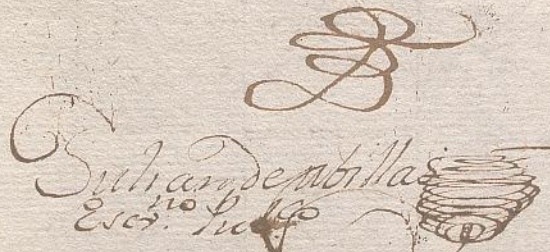 Julian de Ubillas
Escr.no Pubco